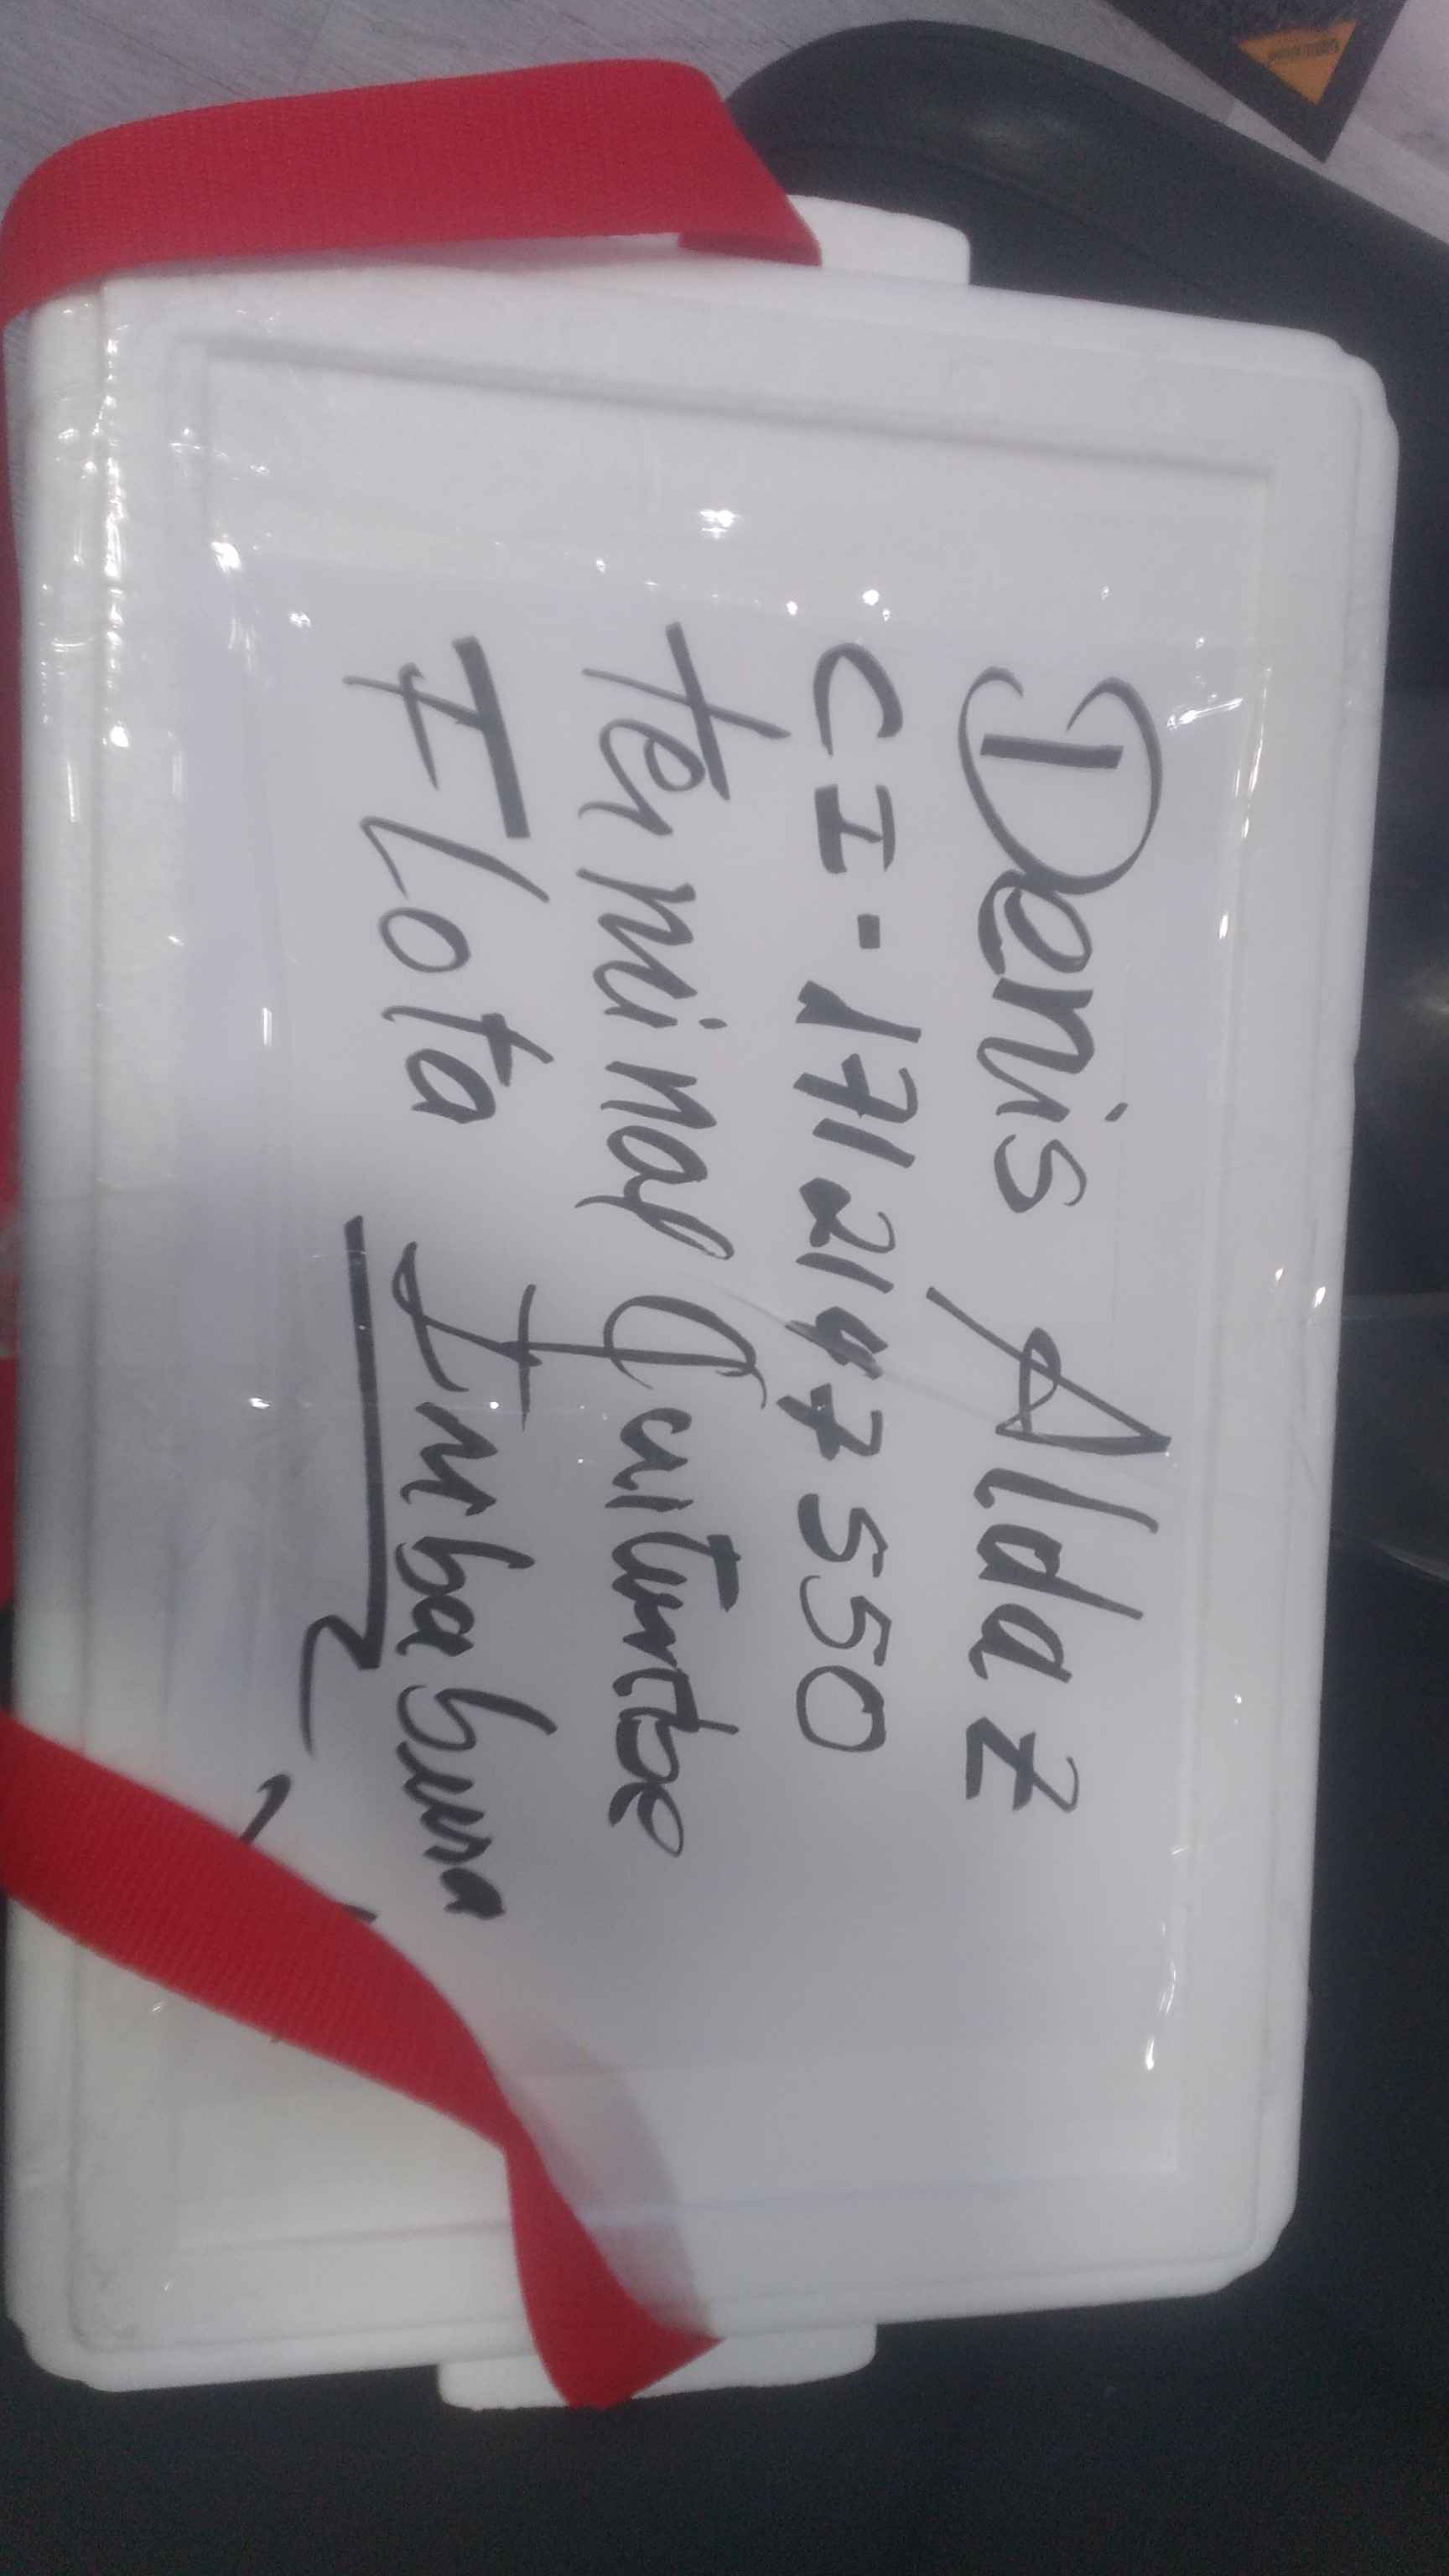 Denis Aldaz
CI-1712197550
Terminal Quitumbe
Flota Imbabura